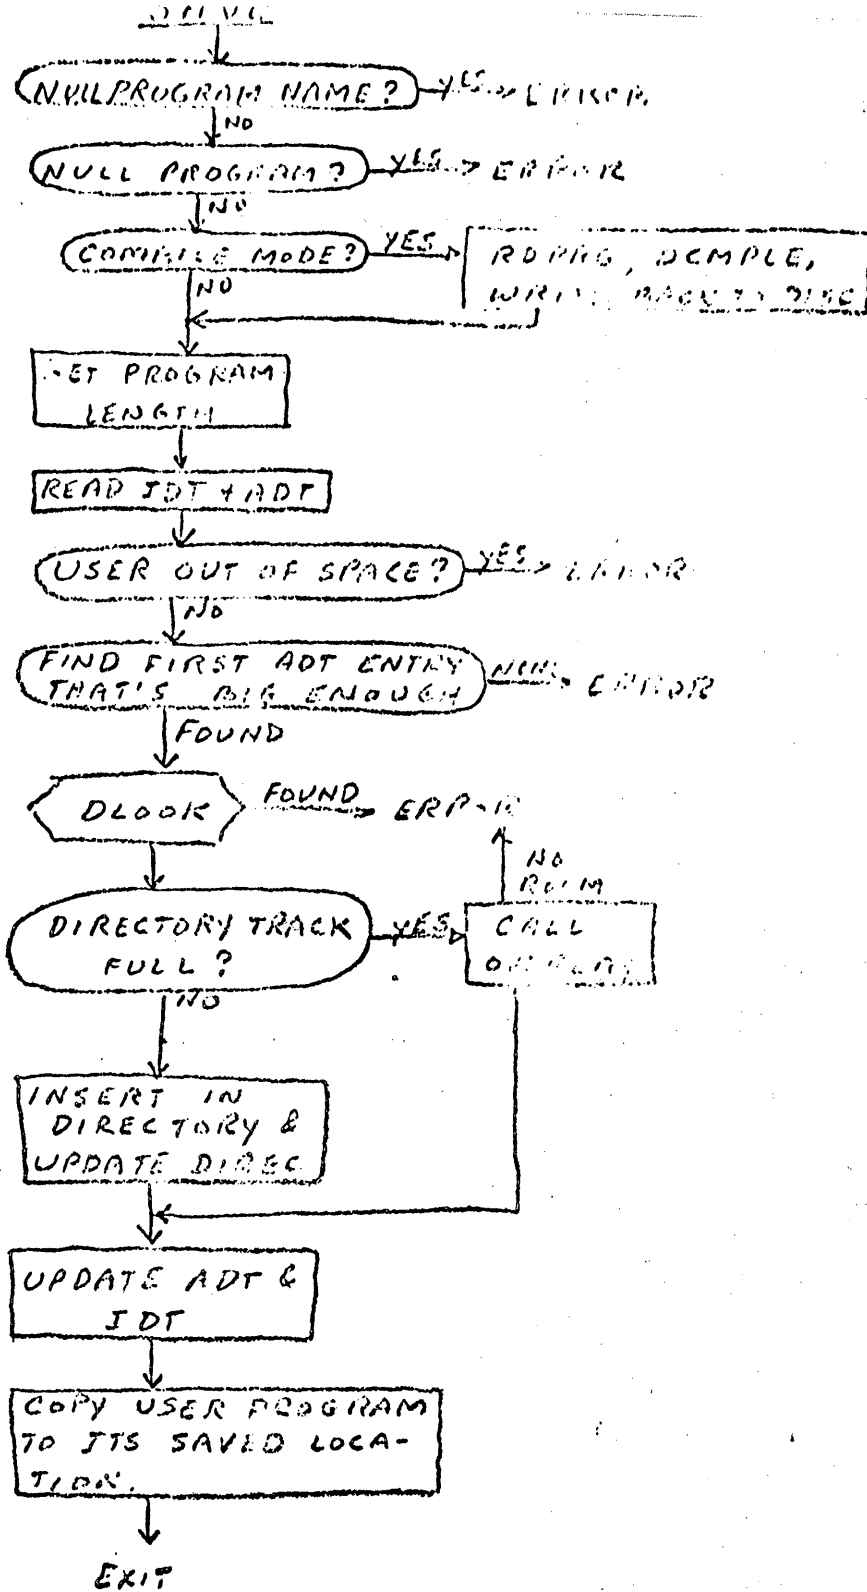 NULL PROGRAM NAME? YES ERROR
NO
NULL PROGRAM? YES ERROR
NO
COMPILE MODE? YES RDPRG, DCMPLE,
WRITE BACK TO DISC
NO
GET PROGRAM
LENGTH
READ IDT + ADT
USER OUT OF SPACE? YES ERROR
NO
FIND FIRST ADT ENTRY
THAT'S BIG ENOUGH NONE ERROR
FOUND
DLOOK FOUND ERROR
NO
ROOM
DIRECTORY TRACK
FULL? YES CALL
OVERLAY
NO
INSERT IN
DIRECTORY &
UPDATE DIREC
UPDATE ADT &
IDT
COPY USER PROGRAM
TO ITS SAVED LOCA-
TION.
EXIT